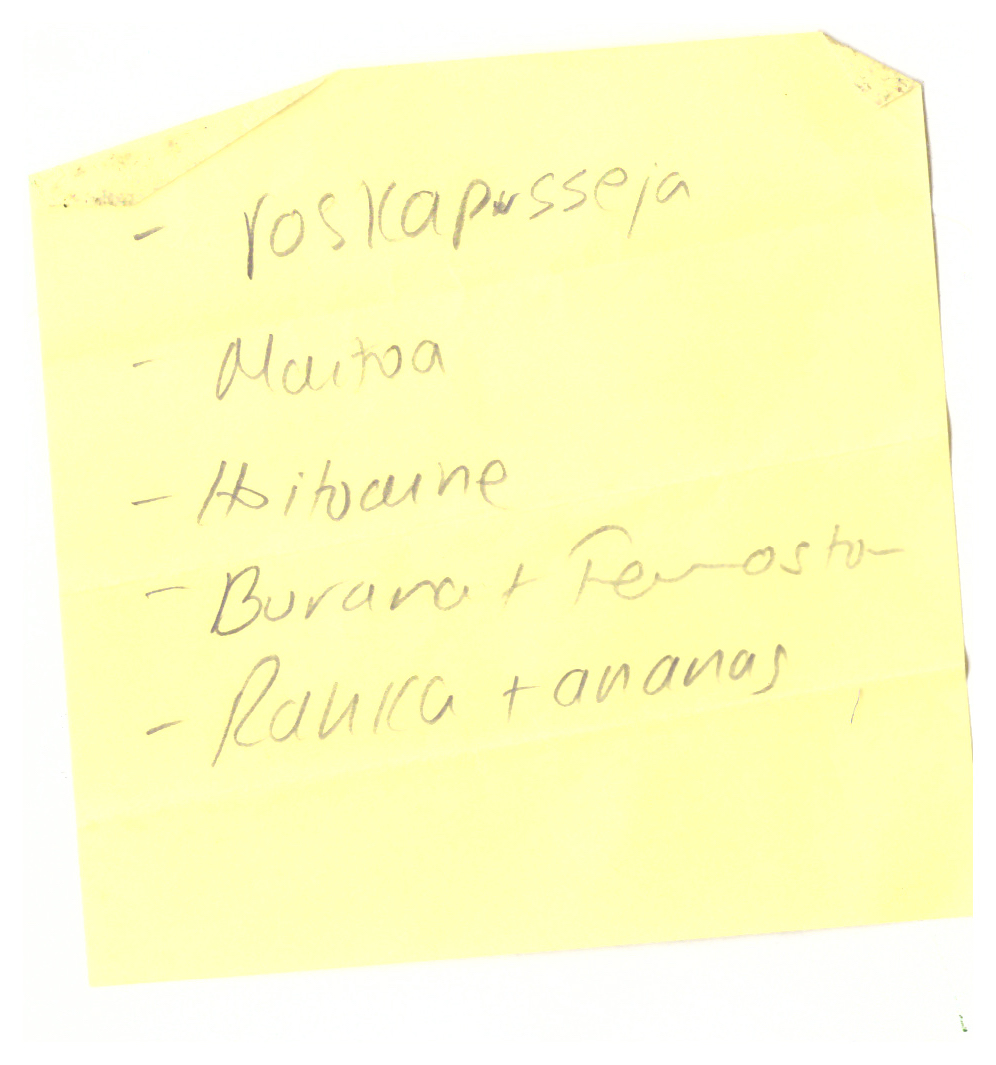 - roskapusseja
- Maitoa
- Hoitoaine
- Burana + Femoston
- Rahka + ananas